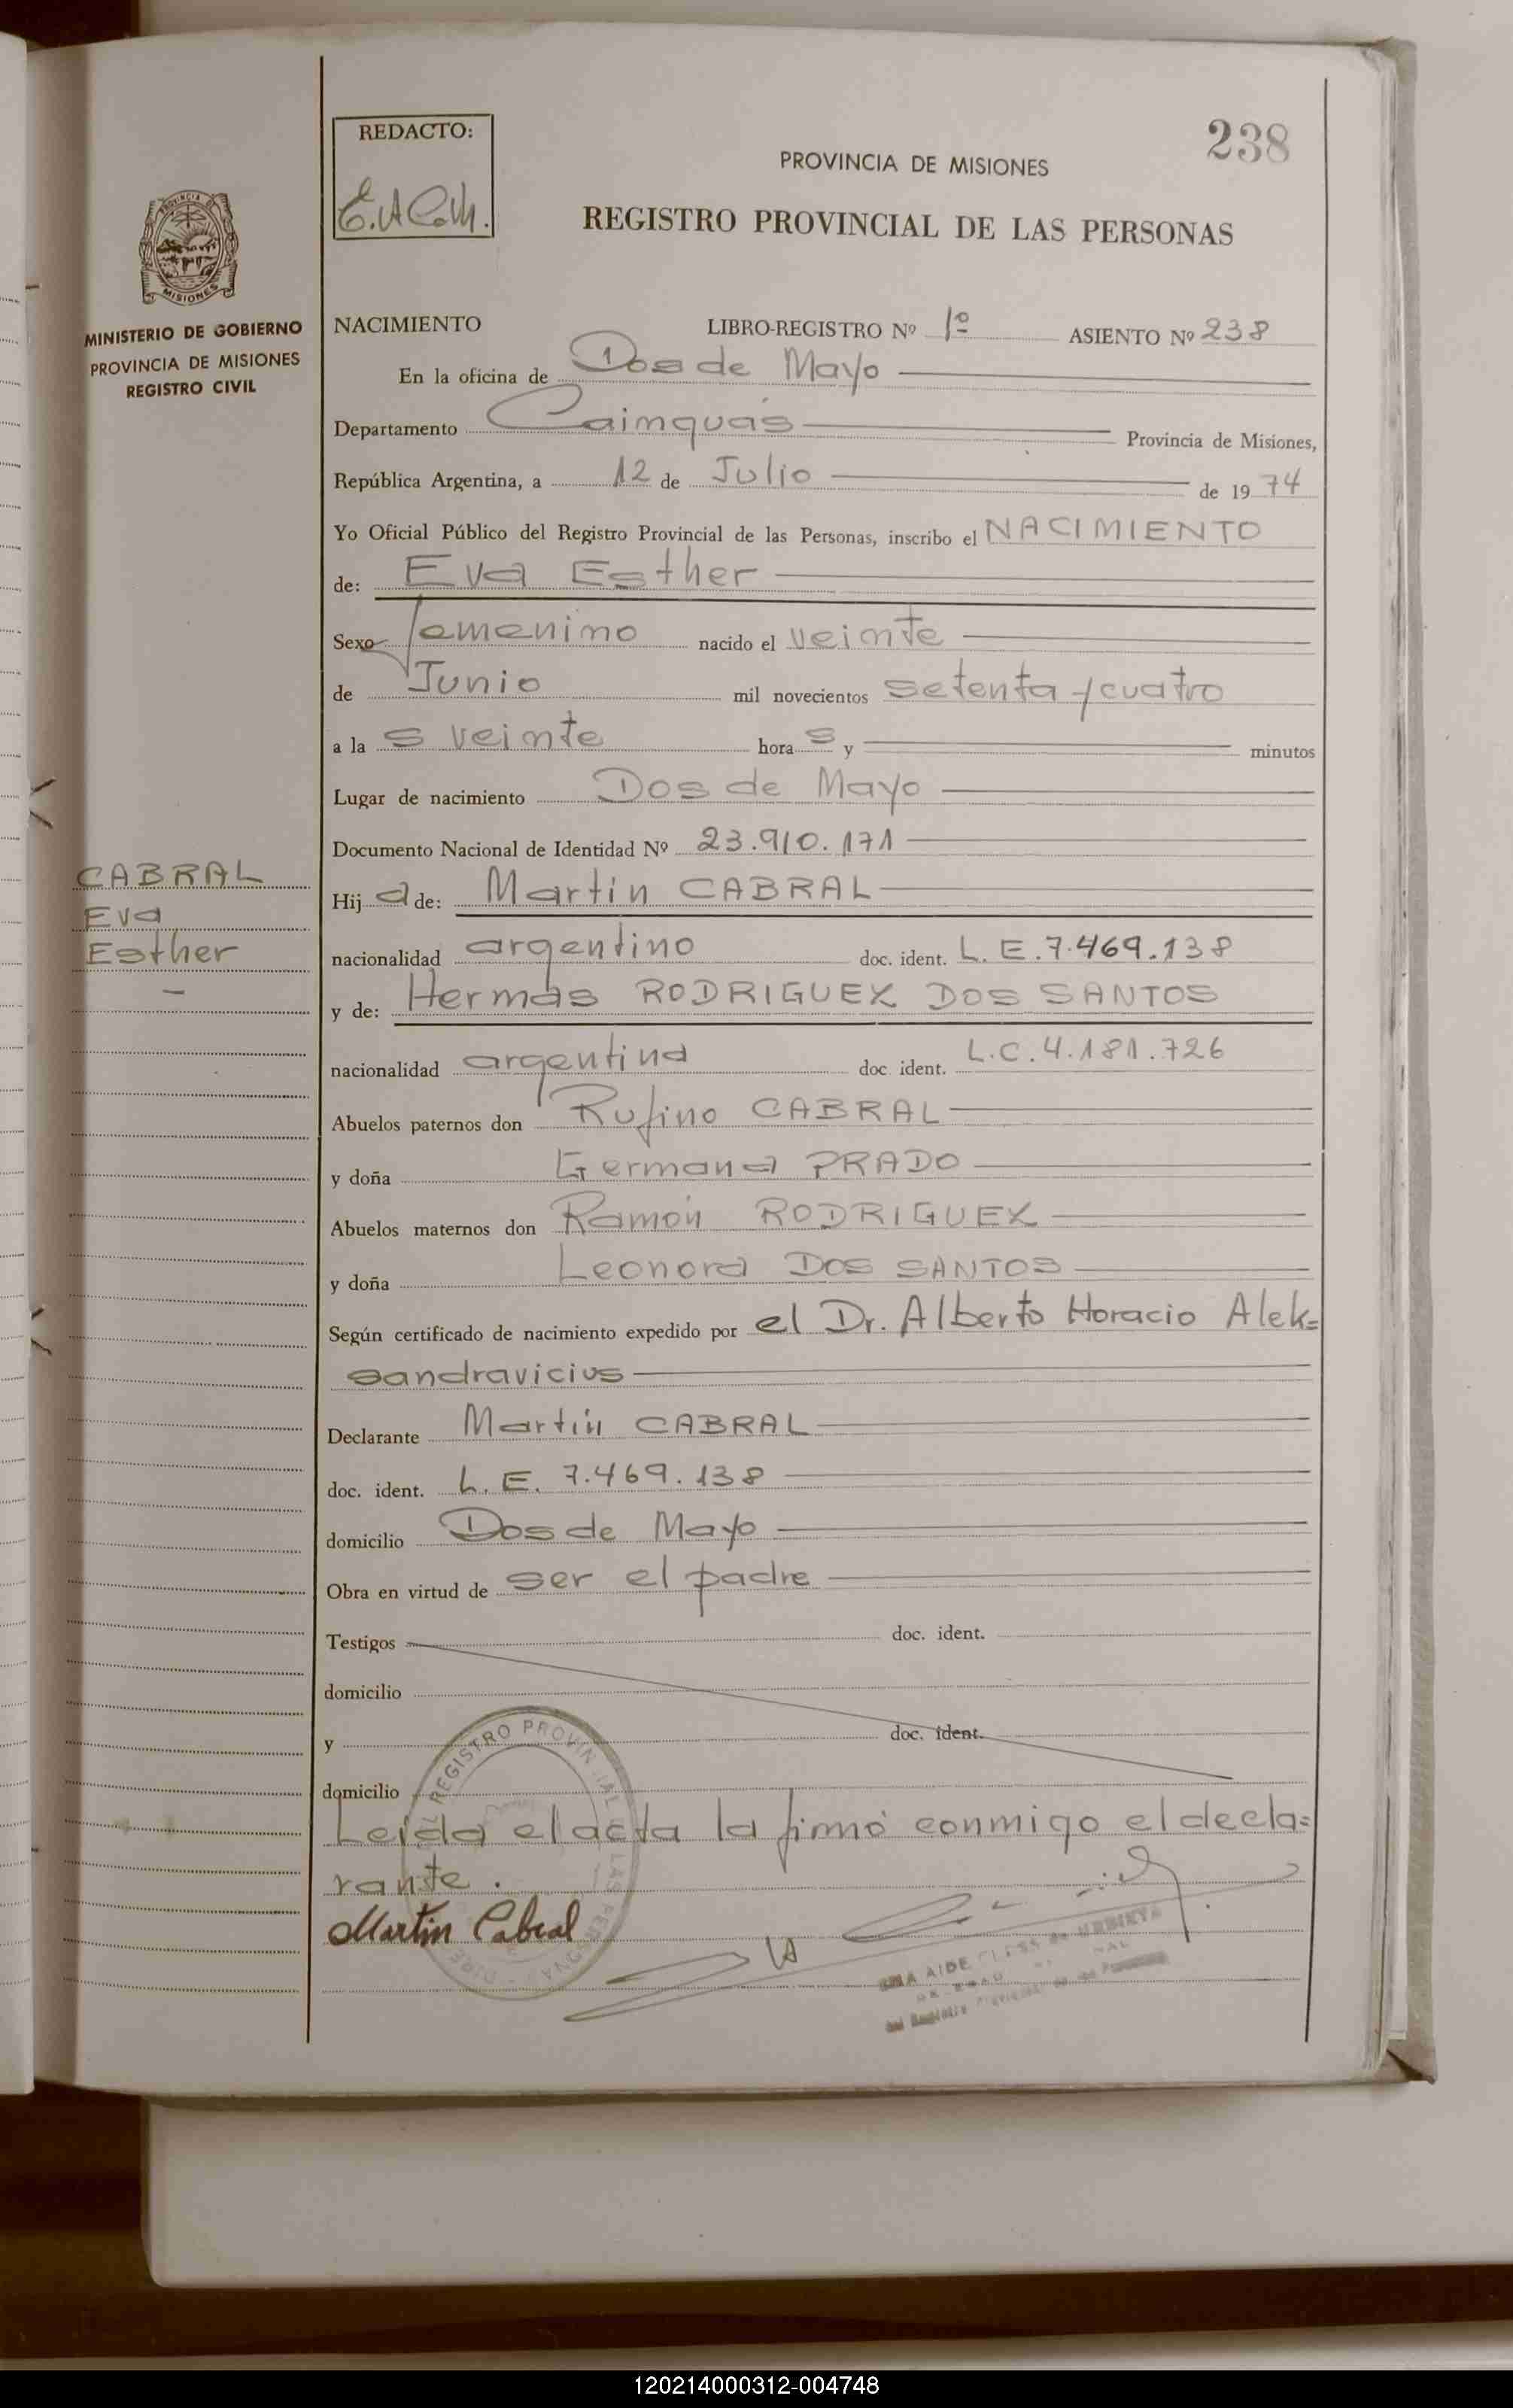 REDACTO:
238
PROVINCIA DE MISIONES
REGISTRO PROVINCIAL DE LAS PERSONAS
MISIONES
MINISTERIO DE GOBIERNO
PROVINCIA DE MISIONES
REGISTRO CIVIL
NACIMIENTO LIBRO-REGISTRO Nº 1º ASIENTO Nº 238
En la oficina de Dos de Mayo
Departamento Cainguás Provincia de Misiones,
República Argentina, a 12 de Julio de 1974
Yo Oficial Público del Registro Provincial de las Personas, inscribo el NACIMIENTO
de: Eva Esther
Sexo femenino nacido el veinte
de Junio mil novecientos setenta y cuatro
a las veinte horas y minutos
Lugar de nacimiento Dos de Mayo
Documento Nacional de Identidad Nº 23.910.171
CABRAL
Eva
Esther
Hija de: Martín CABRAL
nacionalidad argentino doc. ident. L.E. 7.469.138
y de: Hermas RODRIGUEZ DOS SANTOS
nacionalidad argentina doc. ident. L.C. 4.181.726
Abuelos paternos don Rufino CABRAL
y doña Germana PRADO
Abuelos maternos don Ramón RODRIGUEZ
y doña Leonora DOS SANTOS
Según certificado de nacimiento expedido por el Dr. Alberto Horacio Alek=
sandravicius
Declarante Martín CABRAL
doc. ident. L.E. 7.469.138
domicilio Dos de Mayo
Obra en virtud de ser el padre
Testigos doc. ident.
domicilio
y doc. ident.
domicilio
Leída el acta la firmó conmigo el decla=
rante.
Martin Cabral
REGISTRO PROVINCIAL LAS PERSONA
120214000312-004748